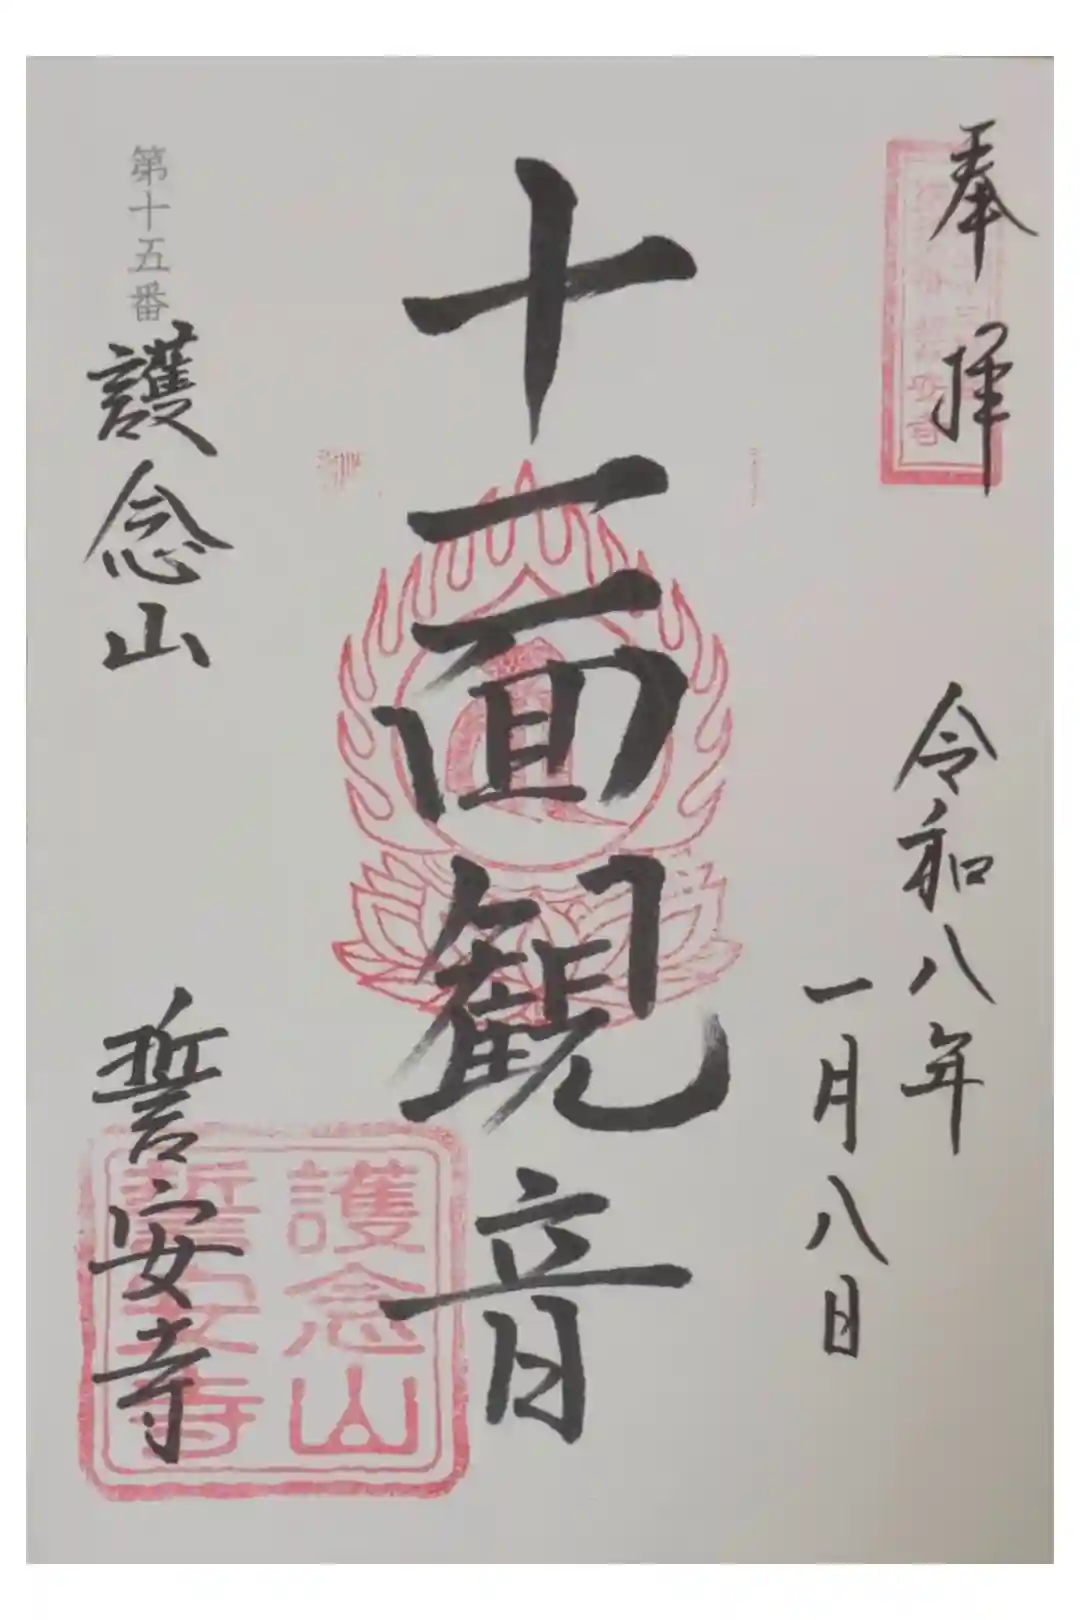 奉拝
令和八年
一月八日
十一面観音
第十五番
護念山
誓安寺
護念山
誓安寺